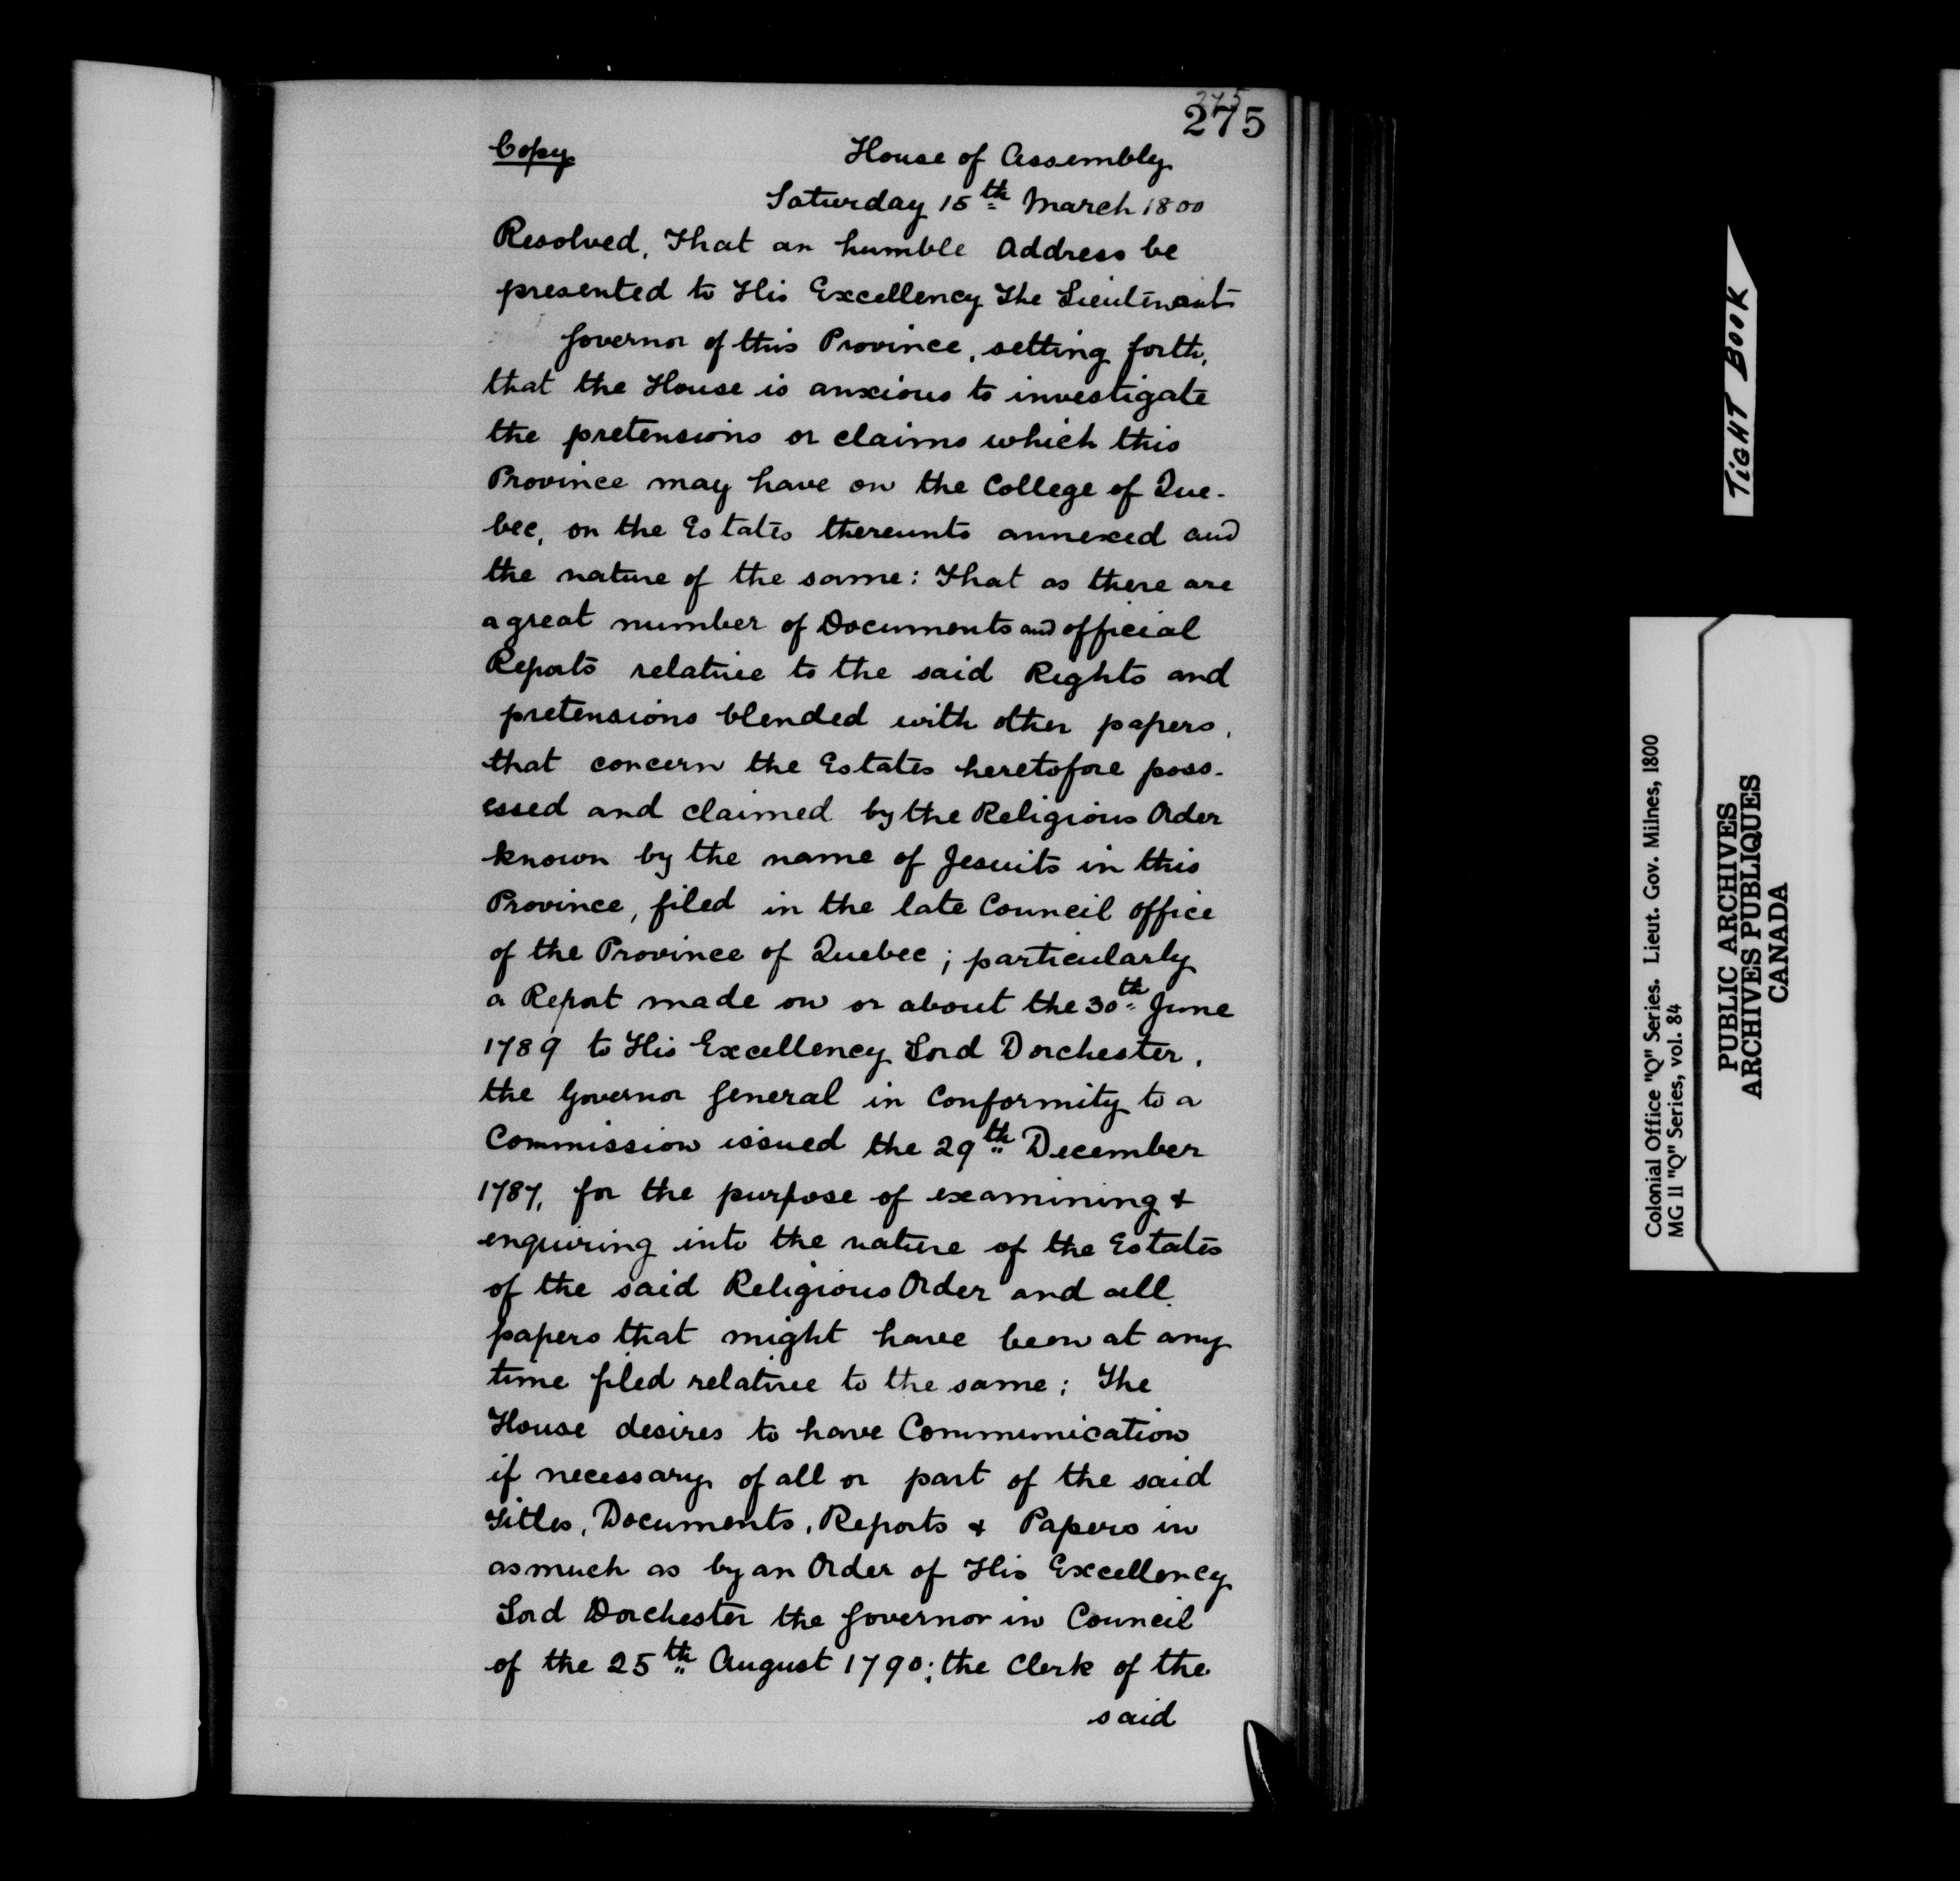 275
275
Copy
House of Assembly
Saturday 15th March 1800
Resolved, That an humble Address be
presented to His Excellency The Lieutenant
Governor of this Province, setting forth,
that the House is anxious to investigate
the pretensions or claims which this
Province may have on the College of Que-
bec, on the Estates thereunto annexed and
the nature of the same: That as there are
a great number of Documents and official
Reports relative to the said Rights and
pretensions blended with other papers,
that concern the Estates heretofore poss-
essed and claimed by the Religious Order
known by the name of Jesuits in this
Province, filed in the late Council office
of the Province of Quebec; particularly
a Report made on or about the 30th June
1789 to His Excellency Lord Dorchester,
the Governor General in Conformity to a
Commission issued the 29th December
1787, for the purpose of examining &
enquiring into the nature of the Estates
of the said Religious Order and all
papers that might have been at any
time filed relative to the same; The
House desires to have Communication
if necessary of all or part of the said
Titles, Documents, Reports & Papers in
as much as by an Order of His Excellency
Lord Dorchester the Governor in Council
of the 25th August 1790; the Clerk of the
said
TIGHT BOOK
Colonial Office "Q" Series. Lieut. Gov. Milnes, 1800
MG 11 "Q" Series, vol. 84
PUBLIC ARCHIVES
ARCHIVES PUBLIQUES
CANADA